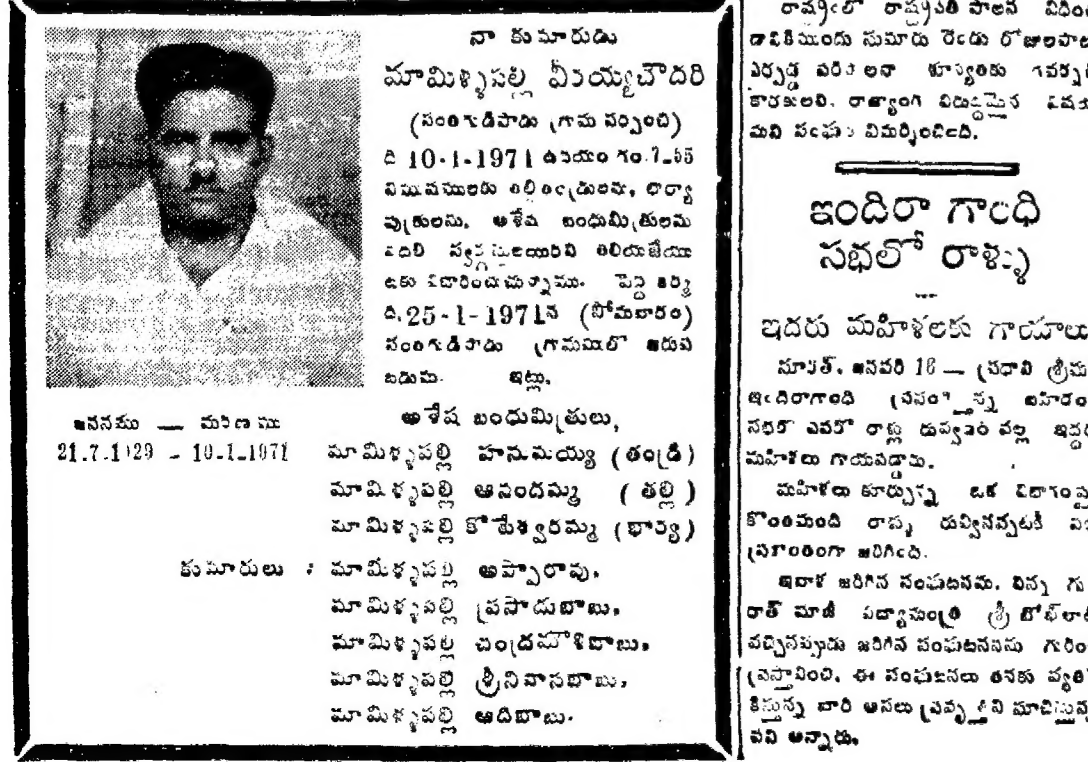 నా కుమారుడు
మామిళ్ళపల్లి వీరయ్యచౌదరి
(సంతగుడిపాడు గ్రామ సర్పంచి)
ది 10-1-1971 ఉదయం గం.7-55
నిముషములకు తల్లితండ్రులను, భార్యా
పుత్రులను, అశేష బంధుమిత్రులను
వదలి స్వర్గస్థులయిరని తెలియజేయు
టకు విచారించుచున్నాము. పెద్ద ఖర్మ
ది.25-1-1971న (సోమవారం)
సంతగుడిపాడు గ్రామములో జరుప
బడును. ఇట్లు,
అశేష బంధుమిత్రులు,
జననము — మరణము
21.7.1929 - 10-1-1971
మామిళ్ళపల్లి హనుమయ్య (తండ్రి)
మామిళ్ళపల్లి ఆనందమ్మ (తల్లి)
మామిళ్ళపల్లి కోటేశ్వరమ్మ (భార్య)
కుమారులు : మామిళ్ళపల్లి అప్పారావు,
మామిళ్ళపల్లి ప్రసాదుబాబు,
మామిళ్ళపల్లి చంద్రమౌళిబాబు,
మామిళ్ళపల్లి శ్రీనివాసబాబు,
మామిళ్ళపల్లి ఆదిబాబు.
రాష్ట్రంలో రాష్ట్రపతి పాలన
దానికిముందు సుమారు రెండు
ఏర్పడ్డ పరిపాలనా శూన్యతకు
కారకులని, రాజ్యాంగ విరుద్ధమైన
మని సంఘం విమర్శించింది.
ఇందిరా గాంధి
సభలో రాళ్ళు
ఇదరు మహిళలకు గాయాలు
సూరత్, జనవరి 16 — ప్రధాని
ఇందిరాగాంధి ప్రసంగిస్తున్న
సభలో ఎవరో రాళ్లు రువ్వడం వల్ల
మహిళలు గాయపడ్డారు.
మహిళలు కూర్చున్న ఒక విభాగంపై
కొంతమంది రాళ్ళు రువ్వినప్పటికీ
ప్రశాంతంగా జరిగింది.
ఇవాళ జరిగిన సంఘటనను, నిన్న
మాజీ విద్యామంత్రి శ్రీ
వచ్చినప్పుడు జరిగిన సంఘటనను
ప్రస్తావించి, ఈ సంఘటనలు తనకు
వారి అసలు ప్రవృత్తిని
వని అన్నారు.